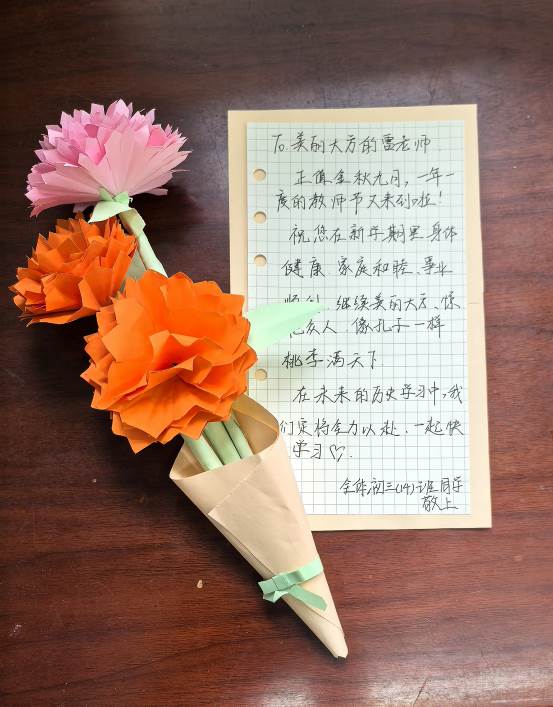 To.美丽大方的雷老师
正值金秋九月，一年一
度的教师节又来到啦！
祝您在新学期里身体
健康、家庭和睦、事业
顺利、继续美丽大方、惊
艳众人、像孔子一样
桃李满天下.
在未来的历史学习中，我
们定将全力以赴，一起快
学习♡.
全体初三(14)班同学
敬上